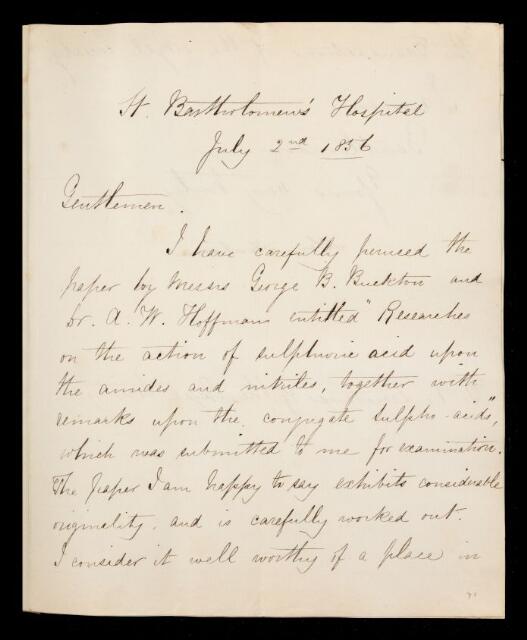 St. Bartholomew's Hospital
July 2nd 1856
Gentlemen.
I have carefully perused the
paper by Messrs George B. Buckton and
Dr. A. W. Hoffmann entitled "Researches
on the action of sulphuric acid upon
the amides and nitriles, together with
remarks upon the conjugate sulpho-acids",
which was submitted to me for examination.
The paper I am happy to say exhibits considerable
originality, and is carefully worked out.
I consider it well worthy of a place in